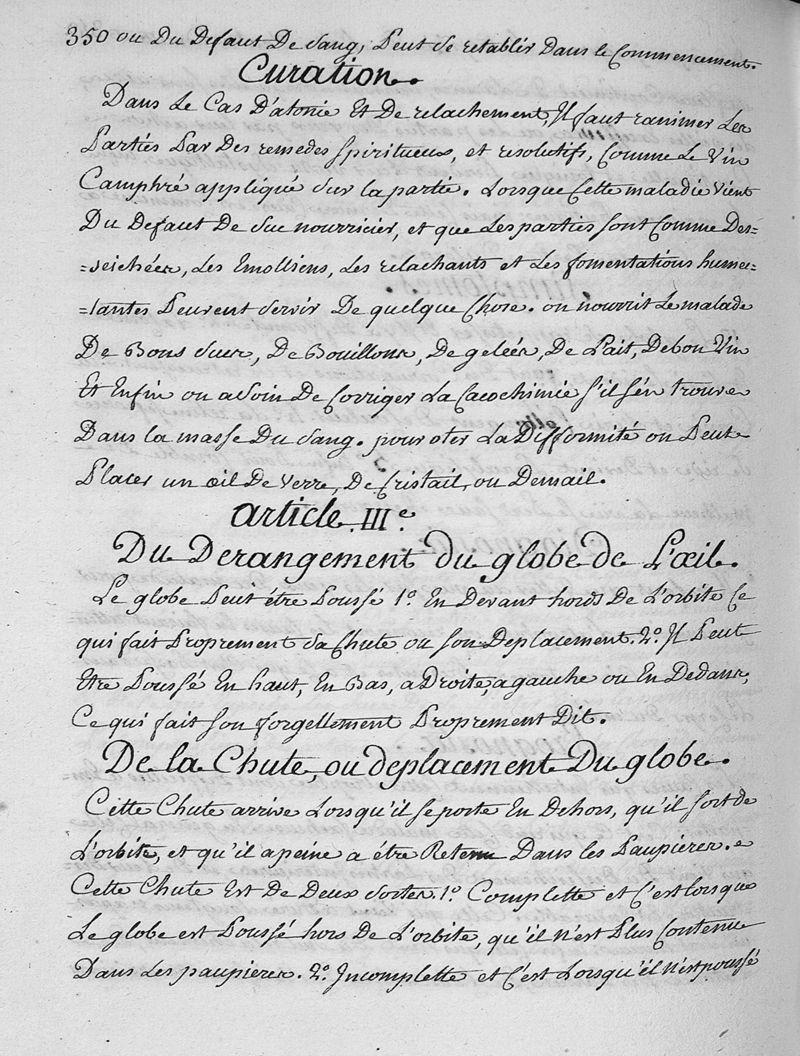 350 ou Du Defaut De sang, Peut se retablir Dans le Commencement.
Curation.
Dans Le Cas D'atonie Et De relachement, Il faut ranimer Les
Parties Par Des remedes Spiritueux, et resolutifs, Comme Le Vin
Camphré appliqué sur la partie. Lorsque Cette maladie Vient
Du Defaut De suc nourricier, et que Les parties sont Comme Des=
=seichées, Les Emolliens, Les relachants et Les fomentations humec=
=tantes Peuvent servir De quelque Chose. on nourrit Le malade
De Bons sucs, De Bouillons, De gelées, De Lait, De bon Vin
Et Enfin on a soin De Corriger La Cacochimie s'il s'en trouve
Dans la masse Du sang. pour oter La Difformité on Peut
Placer un œil De Verre, De Cristail, ou Demail.
article IIIe
Du Derangement du globe de L'œil.
Le globe Peut étre Poussé 1o. En Devant hors De L'orbite Ce
qui fait Proprement sa Chute ou son Deplacement. 2o. Il Peut
Etre Poussé En haut, En Bas, a Droite, a gauche ou En Dedans,
Ce qui fait son forgellement Proprement Dit.
De la Chute, ou deplacement Du globe.
Cette Chute arrive Lorsqu'il se porte En Dehors, qu'il sort de
L'orbite, et qu'il a peine a étre Retenu Dans les Paupieres.
Cette Chute Est De Deux sortes. 1o. Complette et C'est lorsque
Le globe est Poussé hors De L'orbite, qu'il n'est Plus Contenu
Dans Les paupieres. 2o. Incomplette et C'est Lorsqu'il n'est poussé